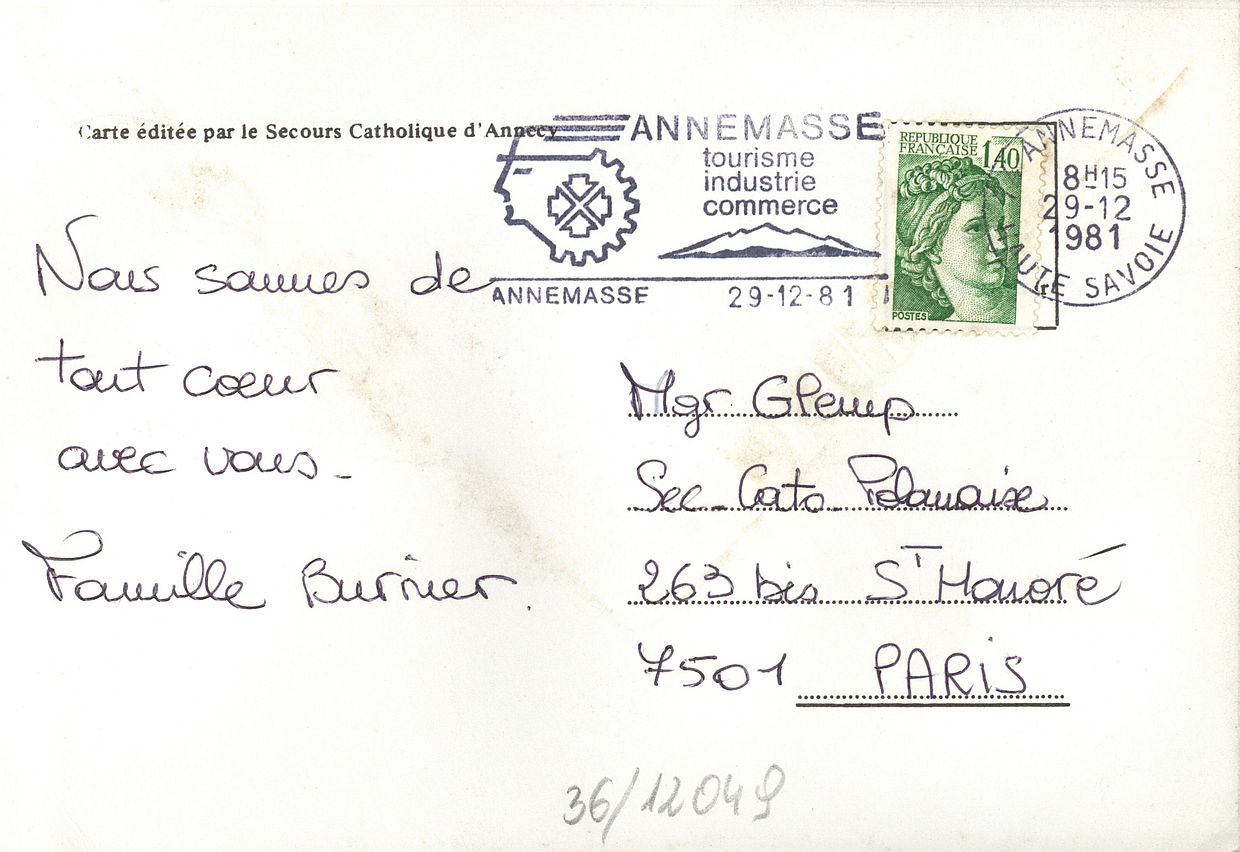 Carte éditée par le Secours Catholique d'Annecy
ANNEMASSE
tourisme
industrie
commerce
ANNEMASSE 29-12-81
REPUBLIQUE
FRANÇAISE 1,40
POSTES
ANNEMASSE
8H15
29-12
1981
HAUTE SAVOIE
Nous sommes de
tout cœur
avec vous_
Famille Burnier.
Mgr Glemp
Sec_Cato_Polonaise
263 bis St Honoré
7501 PARIS
36/12049